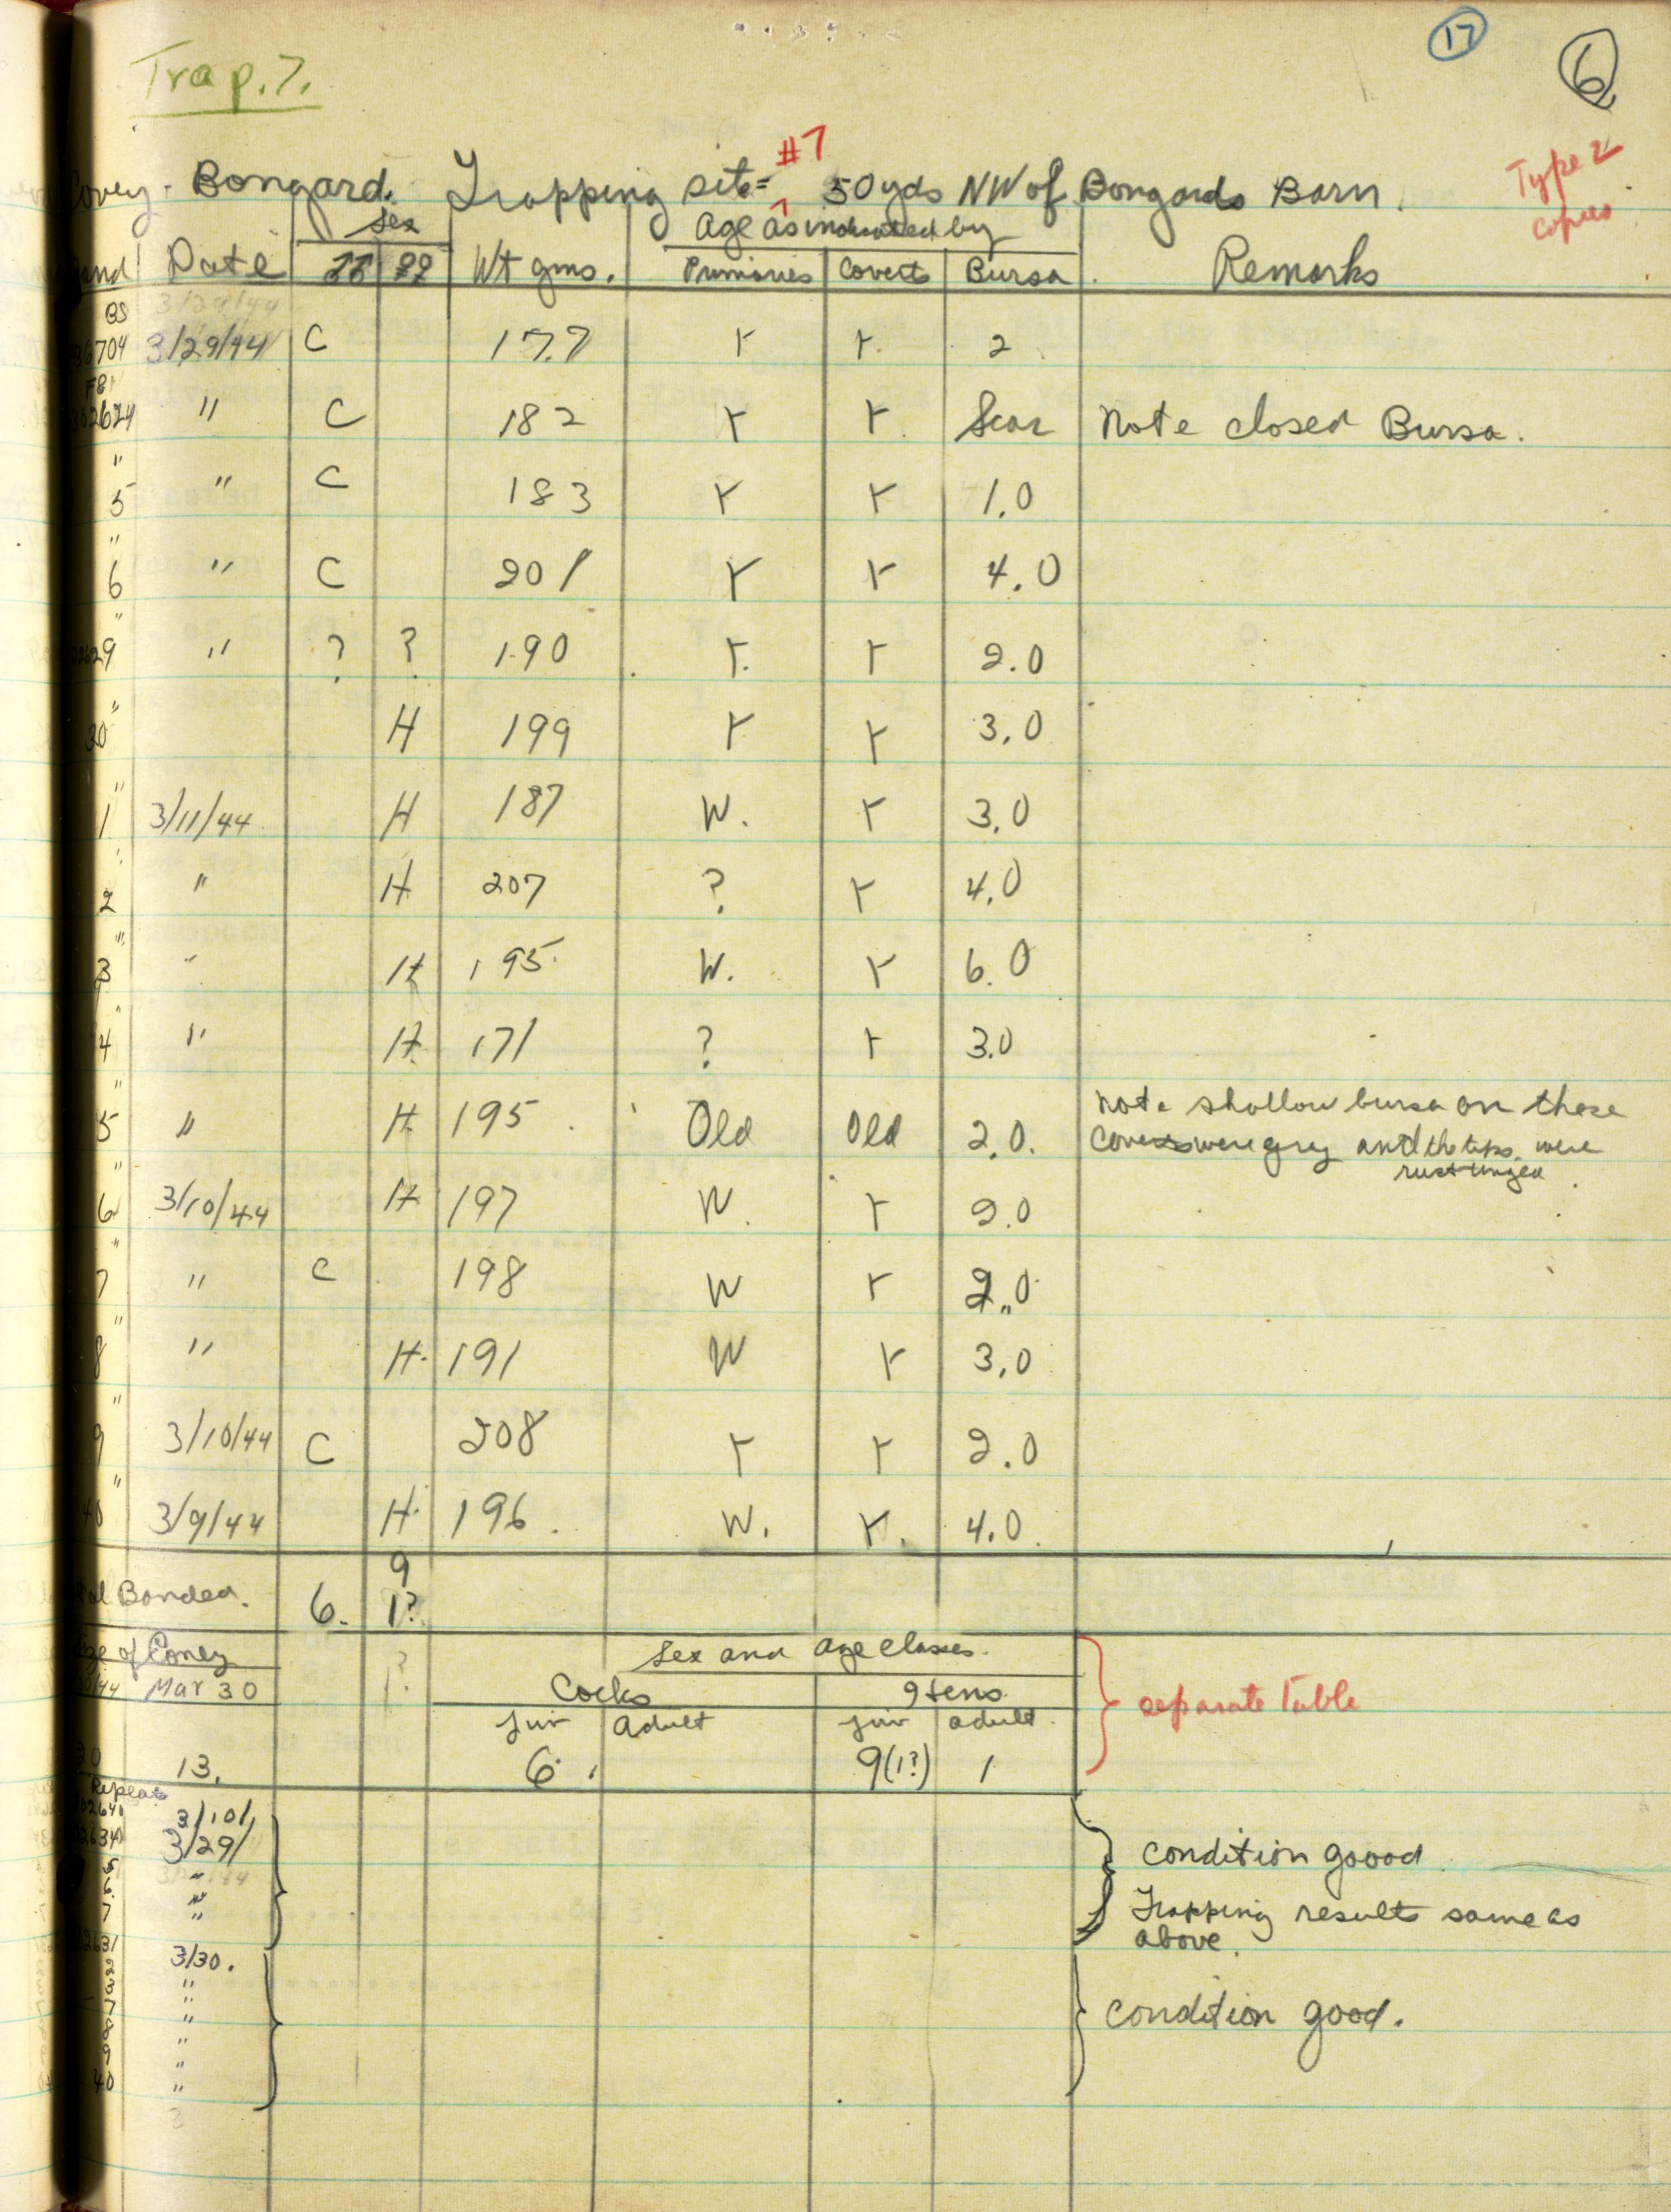 17
6
Trap. 7.
#7
Type 2
copies
Covey - Bongard. Trapping site = 50 yds NW of Bongards Barn.
Sex Age as indicated by
Band Date ♂♂ ♀♀ Wt gms. Primaries Coverts Bursa Remarks
BS 3/29/44
36704 3/29/44 C 177 Y Y 2
F&
302624 " C 182 Y Y Scar Note closed Bursa.
" 5 " C 183 Y Y 1.0
" 6 " C 201 Y Y 4.0
" 02629 " ? ? 190 Y. Y 2.0
" 30 H 199 Y Y 3.0
" 1 3/11/44 H 187 W. Y 3.0
" 2 " H 207 ? Y 4.0
" 3 " H 195 W. Y 6.0
" 4 " H 171 ? Y 3.0
" 5 " H 195 Old Old 2.0. Note shallow bursa on these
coverts were grey and the tips were
rust tinged.
" 6 3/10/44 H 197 W. Y 2.0
" 7 " C 198 W Y 2.0
" 8 " H. 191 W Y 3.0
" 9 3/10/44 C 208 Y Y 2.0
" 40 3/9/44 H. 196. W. Y. 4.0
9
Banded. 6. 1?
of Covey ? Sex and age classes
/44 Mar 30 Cocks Hens separate table
Juv adult Juv adult
13. 6. 9(1?) 1
Repeats
02640 3/10/
02634 3/29/ condition goood
5 "
6 " Trapping results same as
7 " above.
02631 3/30.
"
" condition good.
"
"
9 "
40 "